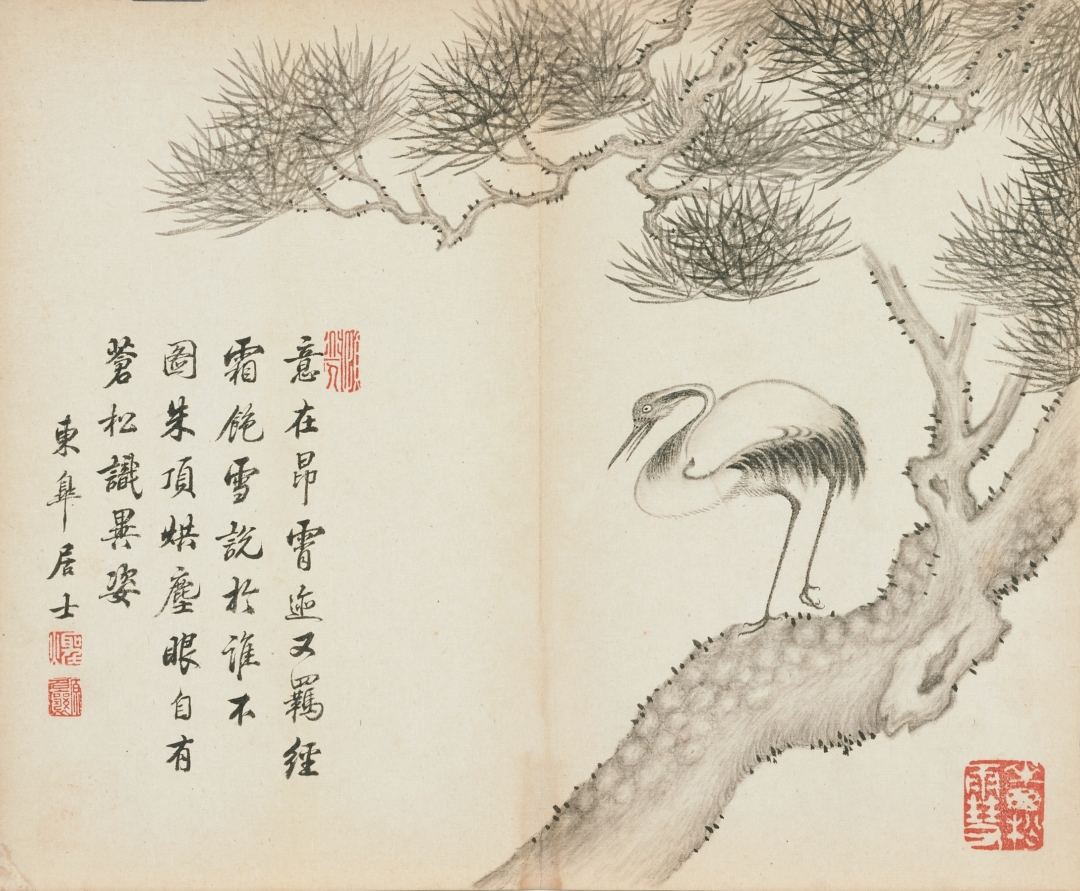 意在昂霄迹又羈經
霜飽雪說於誰不
圖朱頂烘塵眼自有
蒼松識異姿
東皋居士